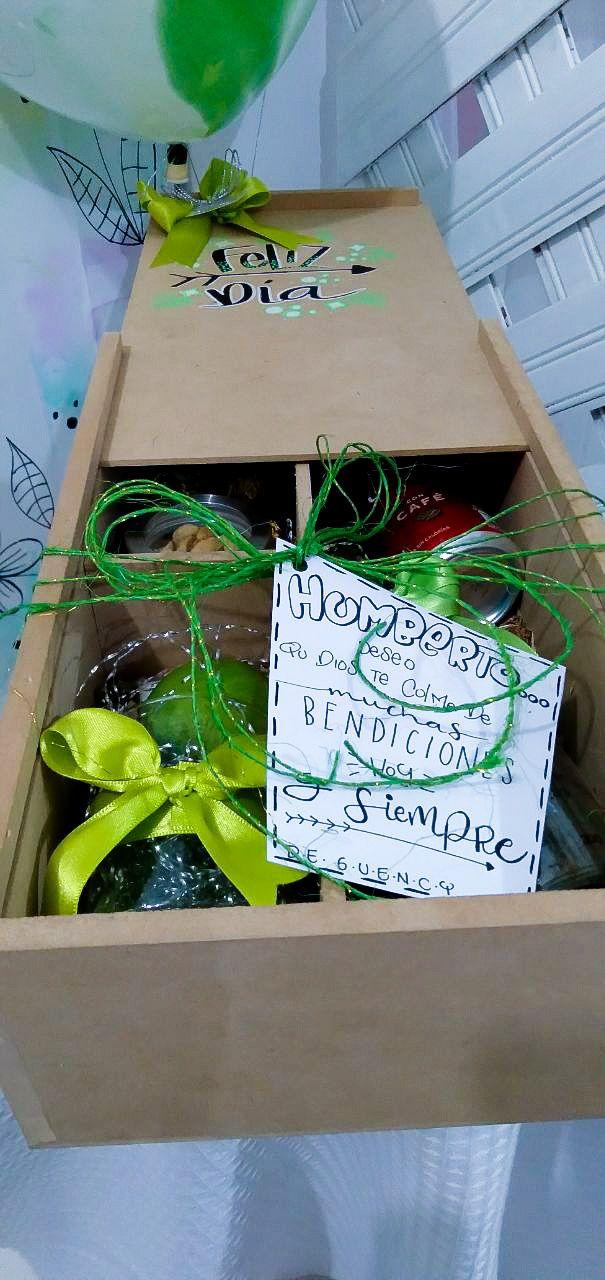 Feliz
Día
CON
CAFÉ
HUMBERTO...
Deseo
Qu Dios Te Colme De
muchas
BENDICIONES
Hoy
y Siempre